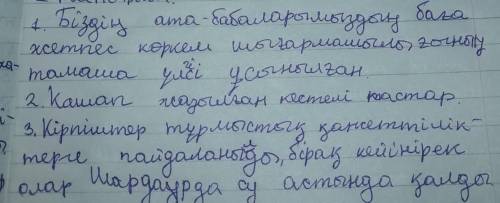 1. Біздің ата-бабаларымыздың баға
жетпес көркем шығармашылығының
тамаша үлгісі ұсынылған.
2. Қашап жазылған кестелі тастар.
3. Кірпіштер тұрмыстық қажеттілік-
терге пайдаланылды, бірақ кейінірек
олар Шардаурда су астында қалды